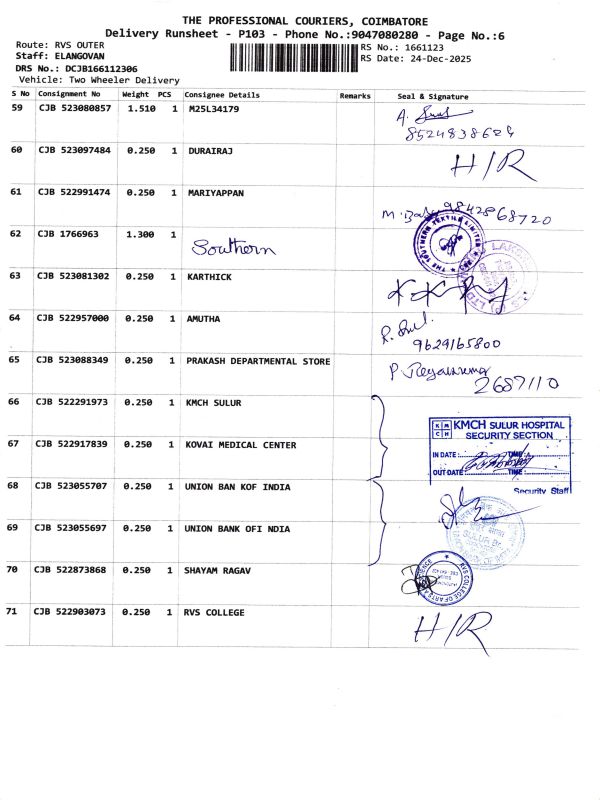 THE PROFESSIONAL COURIERS, COIMBATORE
Delivery Runsheet - P103 - Phone No.:9047080280 - Page No.:6
Route: RVS OUTER
RS No.: 1661123
Staff: ELANGOVAN
RS Date: 24-Dec-2025
DRS No.: DCJB166112306
Vehicle: Two Wheeler Delivery
S No Consignment No Weight PCS Consignee Details Remarks Seal & Signature
59 CJB 523080857 1.510 1 M25L34179
A.
8524838624
60 CJB 523097484 0.250 1 DURAIRAJ
H/R
61 CJB 522991474 0.250 1 MARIYAPPAN
M. 9842868720
62 CJB 1766963 1.300 1 Southern
THE SOUTHERN TEXTILE LIMITED
63 CJB 523081302 0.250 1 KARTHICK
64 CJB 522957000 0.250 1 AMUTHA
R.
9629165800
65 CJB 523088349 0.250 1 PRAKASH DEPARTMENTAL STORE
P
2687110
66 CJB 522291973 0.250 1 KMCH SULUR
KMCH SULUR HOSPITAL
SECURITY SECTION
67 CJB 522917839 0.250 1 KOVAI MEDICAL CENTER
IN DATE : TIME :
OUT DATE TIME :
Security Staff
68 CJB 523055707 0.250 1 UNION BAN KOF INDIA
69 CJB 523055697 0.250 1 UNION BANK OFI NDIA
SULUR Br.
70 CJB 522873868 0.250 1 SHAYAM RAGAV
RVS COLLEGE OF ARTS & SCIENCE
71 CJB 522903073 0.250 1 RVS COLLEGE
H/R